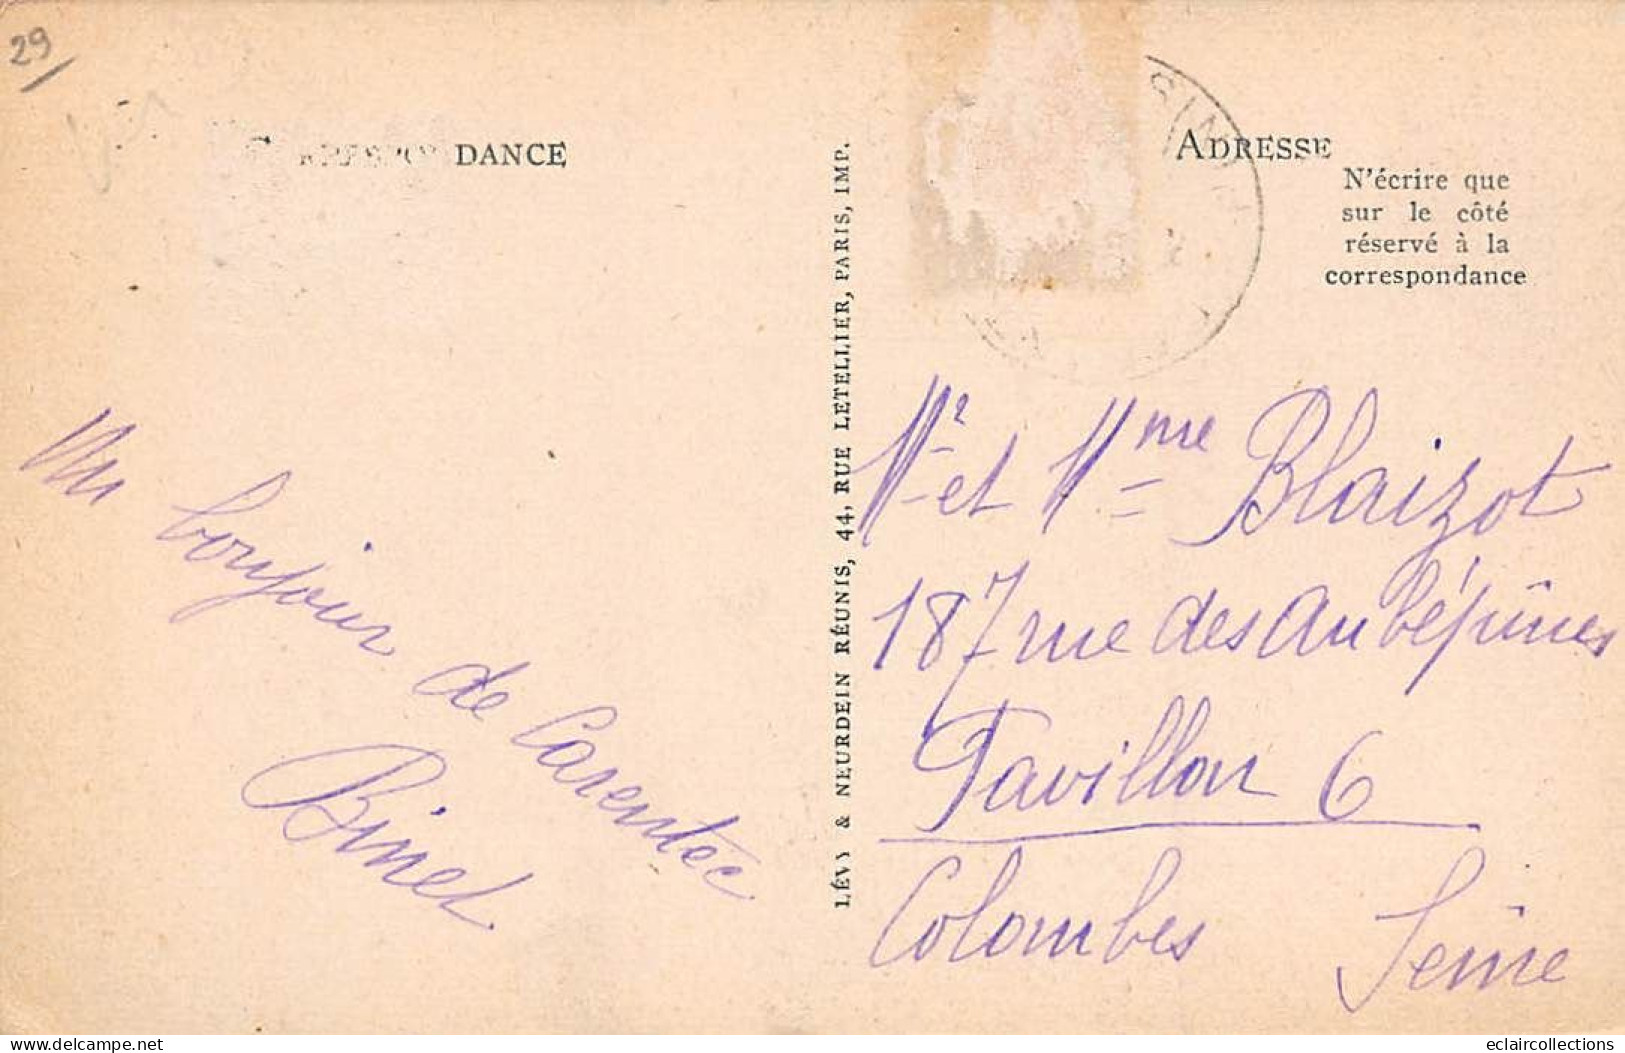 29
CORRESPONDANCE
Un bonjour de Carentec
Binet
LÉVY & NEURDEIN RÉUNIS, 44, RUE LETELLIER, PARIS, IMP.
ADRESSE
N'écrire que
sur le côté
réservé à la
correspondance
Mr et Mme Blaizot
187 rue des Aubépines
Pavillon 6
Colombes Seine
www.delcampe.net
eclaircollections